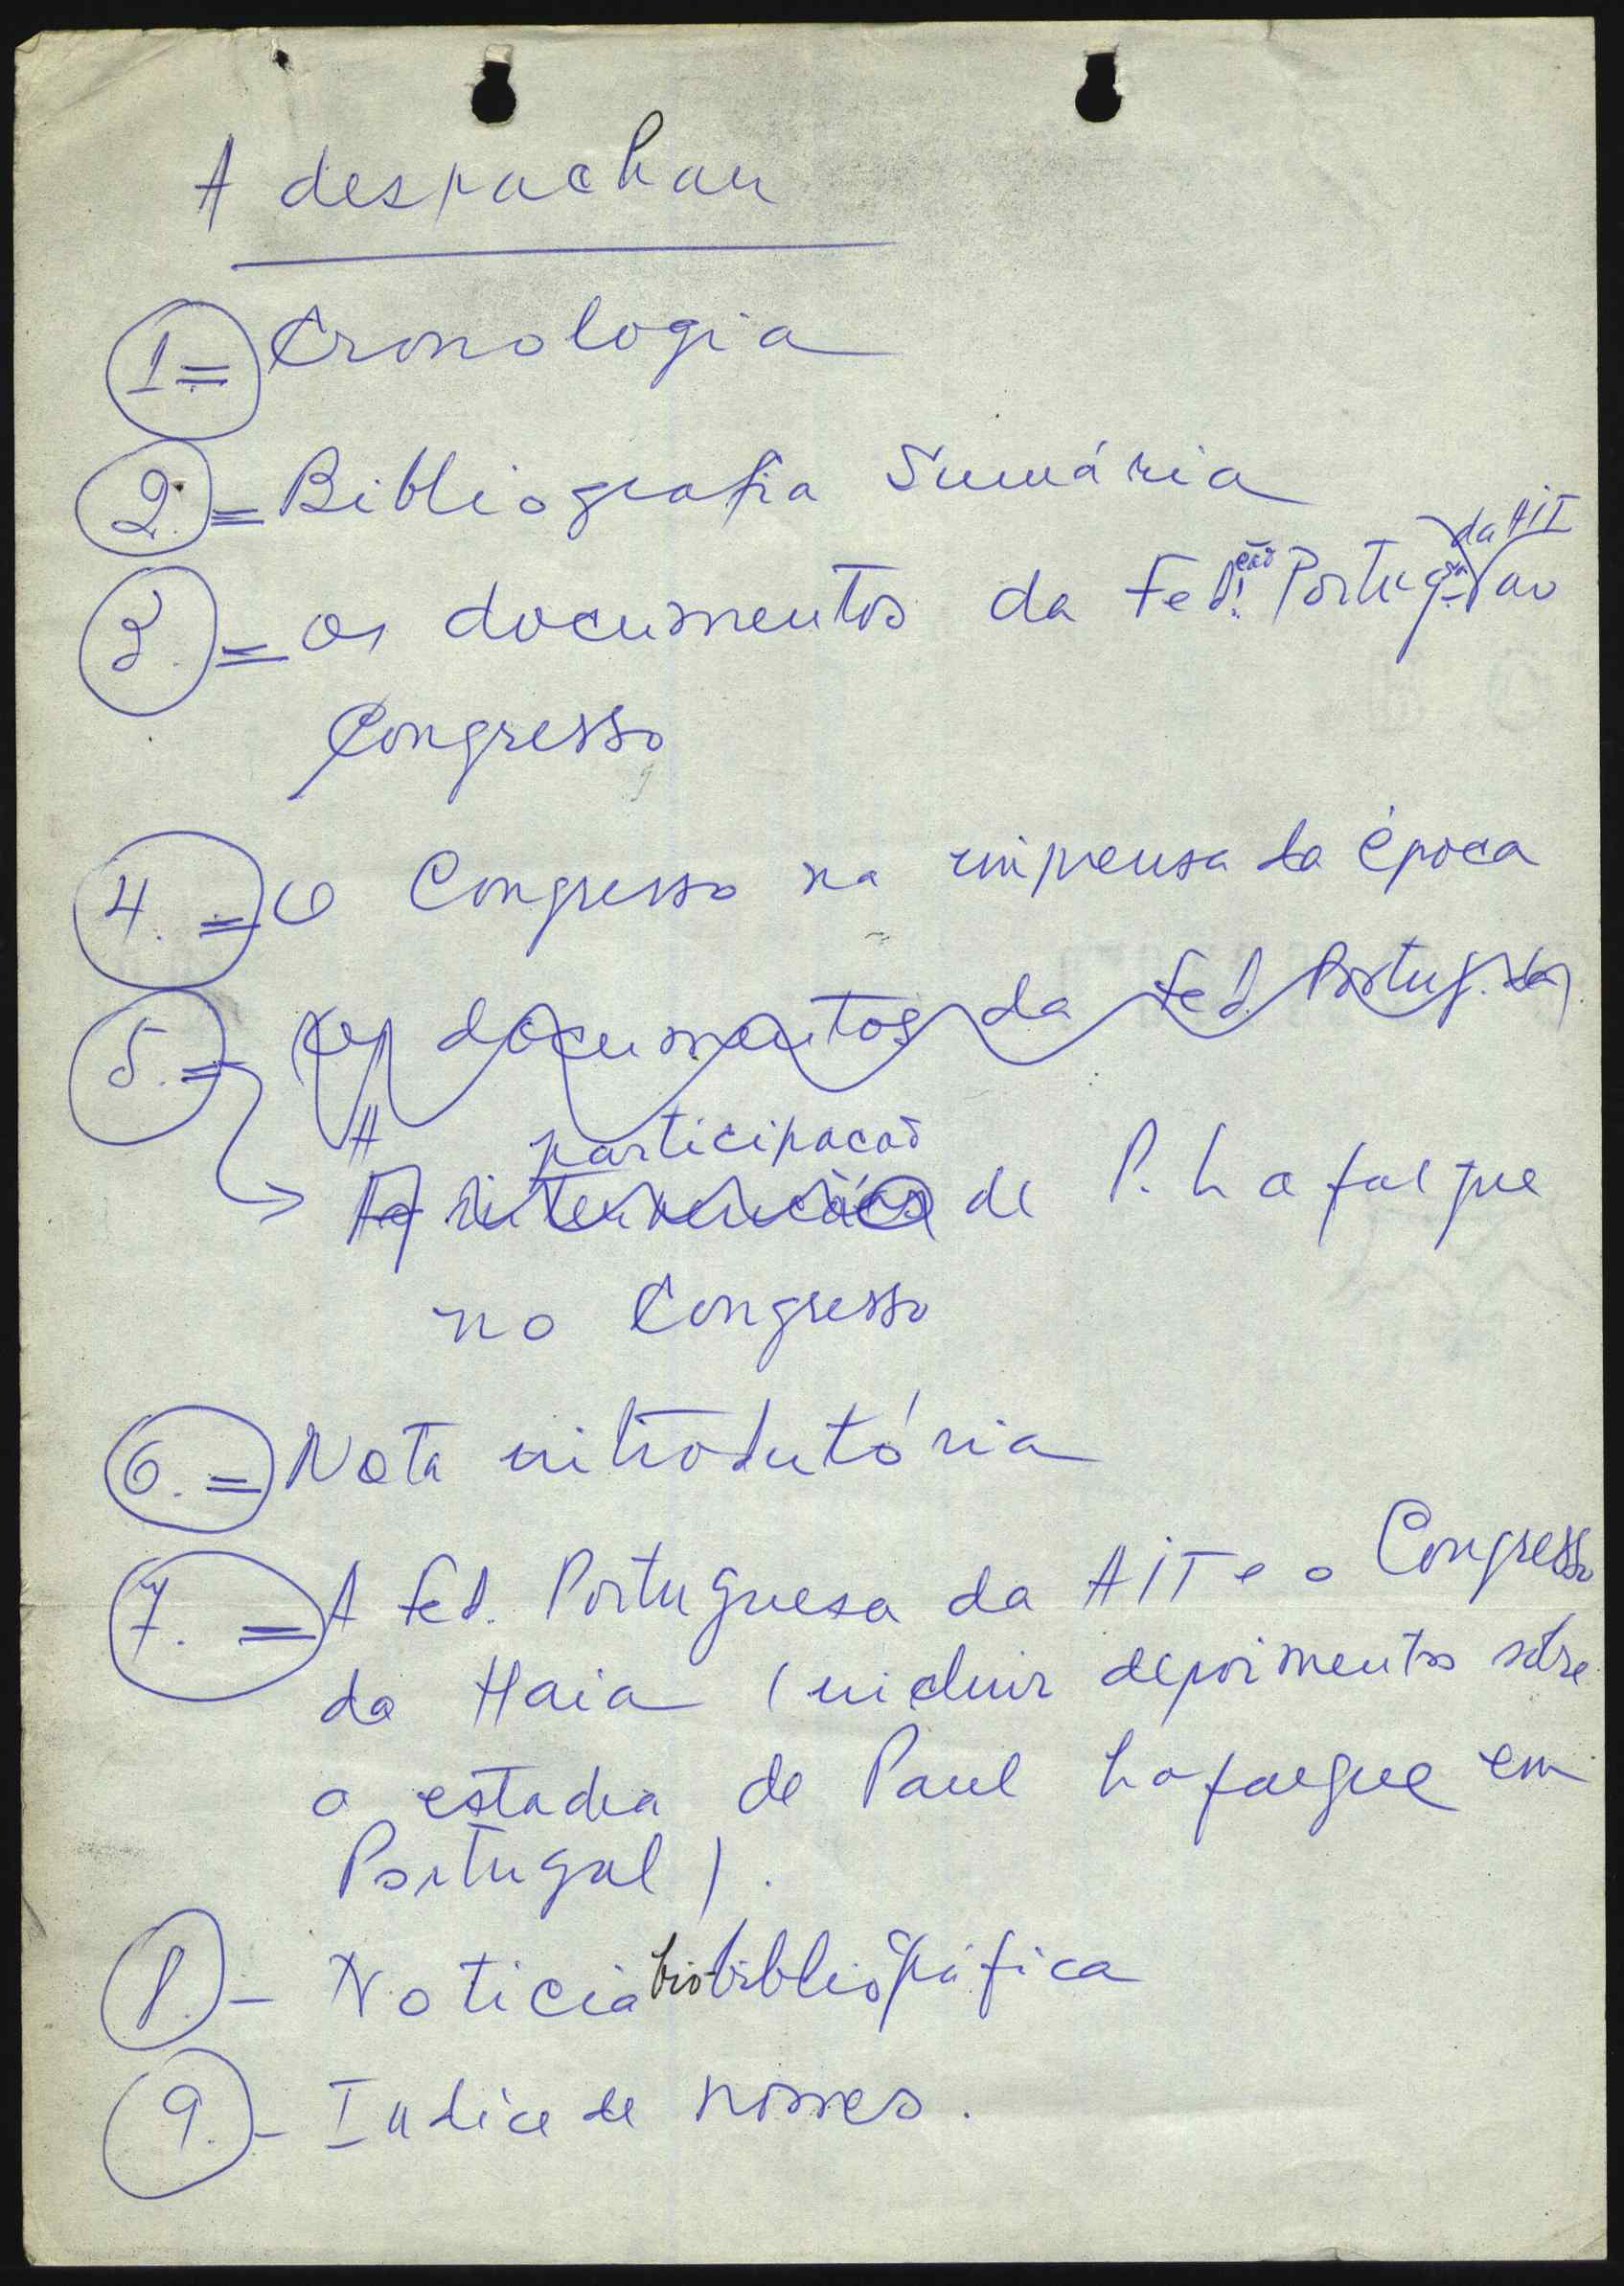 A despachar
1= Cronologia
2.= Bibliografia Sumária
3.= Os documentos da Fed.ção Portug.sa da AIT ao
Congresso
4.= O Congresso na imprensa da época
5.= Os documentos da Fed. Portug. da
A participação
As intervenções de P. Lafargue
no Congresso
6.= Nota introdutória
7.= A Fed. Portuguesa da AIT e o Congresso
da Haia (incluir depoimentos sobre
a estadia de Paul Lafargue em
Portugal).
8.- Noticia bio-bibliográfica
9.- Indice de nomes.